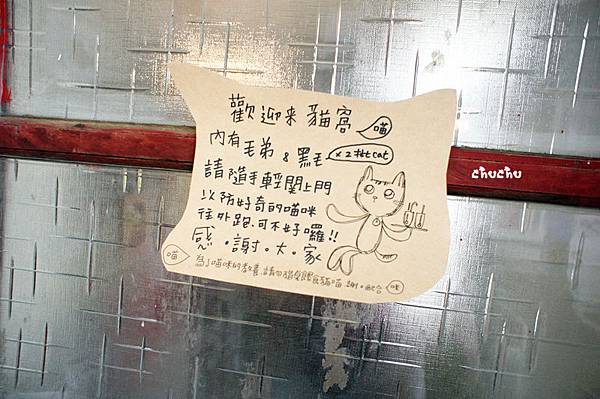 歡迎来貓窩
喵
內有毛弟 & 黑毛
x2共cat
請隨手輕關上門
以防好奇的喵咪
往外跑、可不好囉!!
感.謝.大.家
喵
為了喵咪的教養,請勿
餵食貓喵
配合
chuchu